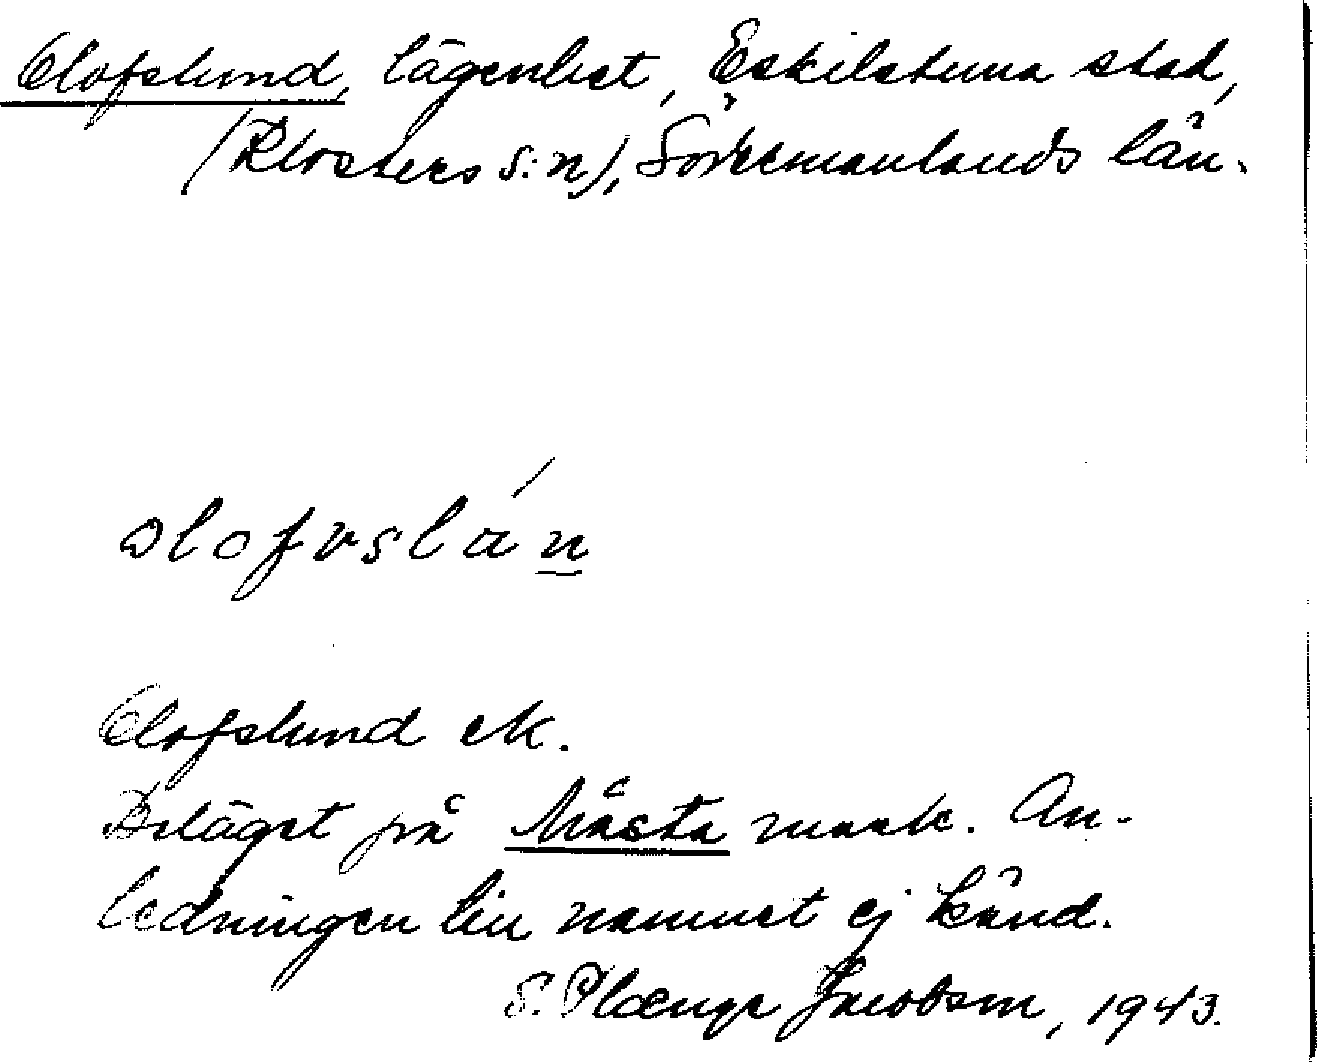 Olofslund, lägenhet, Eskilstuna stad,
(Klosters s:n), Södermanlands län.
olofvslán
Olofslund ek.
Beläget på Måsta mark. An-
ledningen till namnet ej känd.
S. Plœnge Jacobson, 1943.